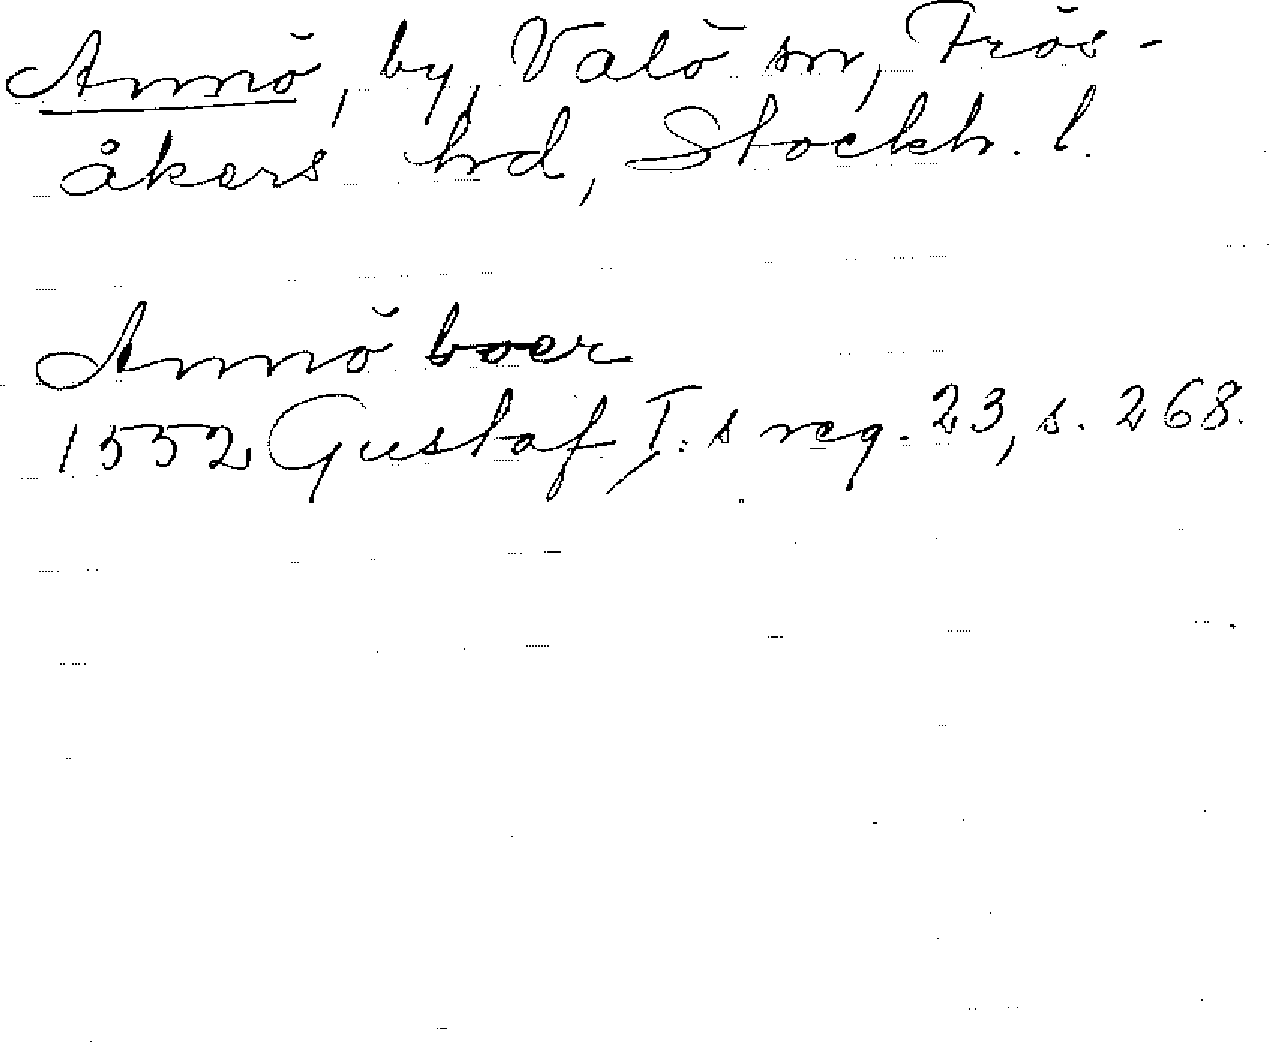 Annö, by, Valö sn, Frös-
åkers hd, Stockh. l.
Annö boer
1552 Gustaf I:s reg. 23, s. 268.